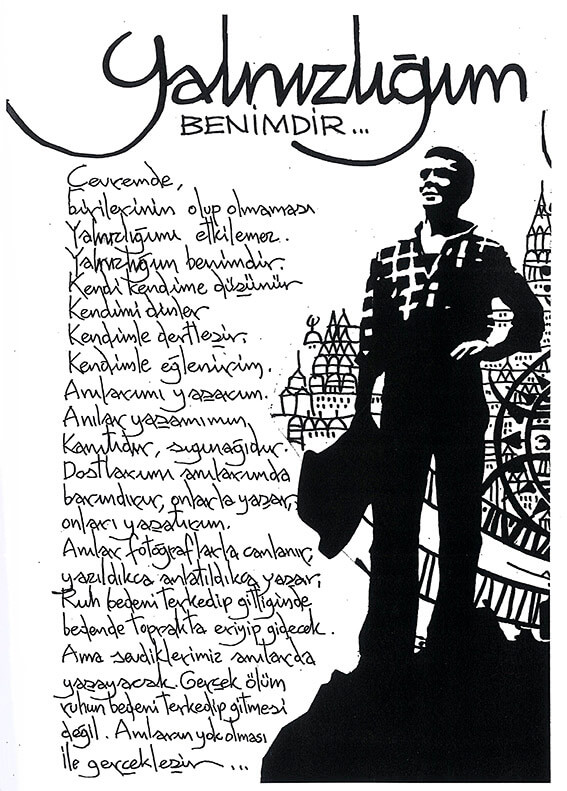 Yalnızlığım
BENİMDİR...
Çevremde,
birilerinin olup olmaması
Yalnızlığımı etkilemez.
Yalnızlığım benimdir.
Kendi kendime düşünür
Kendimi dinler
Kendimle dertleşir,
Kendimle eğlenirim.
Anılarımı yazarım.
Anılar yaşamımın,
Kanıtıdır, sığınağıdır.
Dostlarımı anılarımda
barındırır, onlarla yaşar,
onları yaşatırım.
Anılar fotoğraflarla canlanır,
yazıldıkca anlatıldıkça yaşar,
Ruh bedeni terkedip gittiğinde,
bedende toprakta eriyip gidecek.
Ama sevdiklerimiz anılarda
yaşayacak. Gerçek ölüm
ruhun bedeni terkedip gitmesi
değil. Anıların yok olması
ile gerçekleşir...